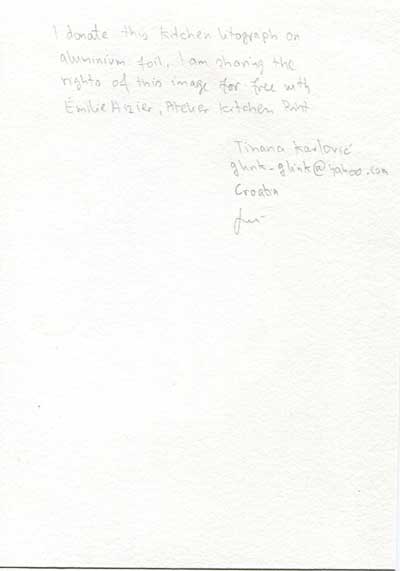 I donate this kitchen litograph on
aluminium foil. I am sharing the
rights of this image for free with
Émilie Aizier, Atelier Kitchen Print
Tihana Karlović
glink-glink@yahoo.com
Croatia